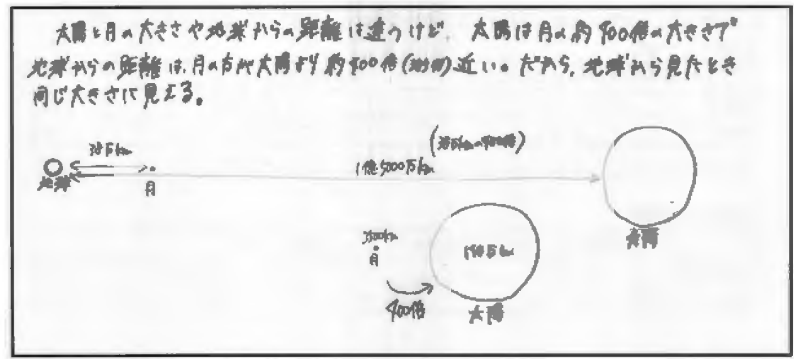 太陽と月の大きさや地球からの距離は違うけど、太陽は月の約400倍の大きさで
地球からの距離は、月の方が太陽より約400倍近い。だから、地球から見たとき
同じ大きさに見える。
(38万kmの400倍)
38万km
1億5000万km
地球
月
太陽
3500km
月
140万km
400倍
太陽